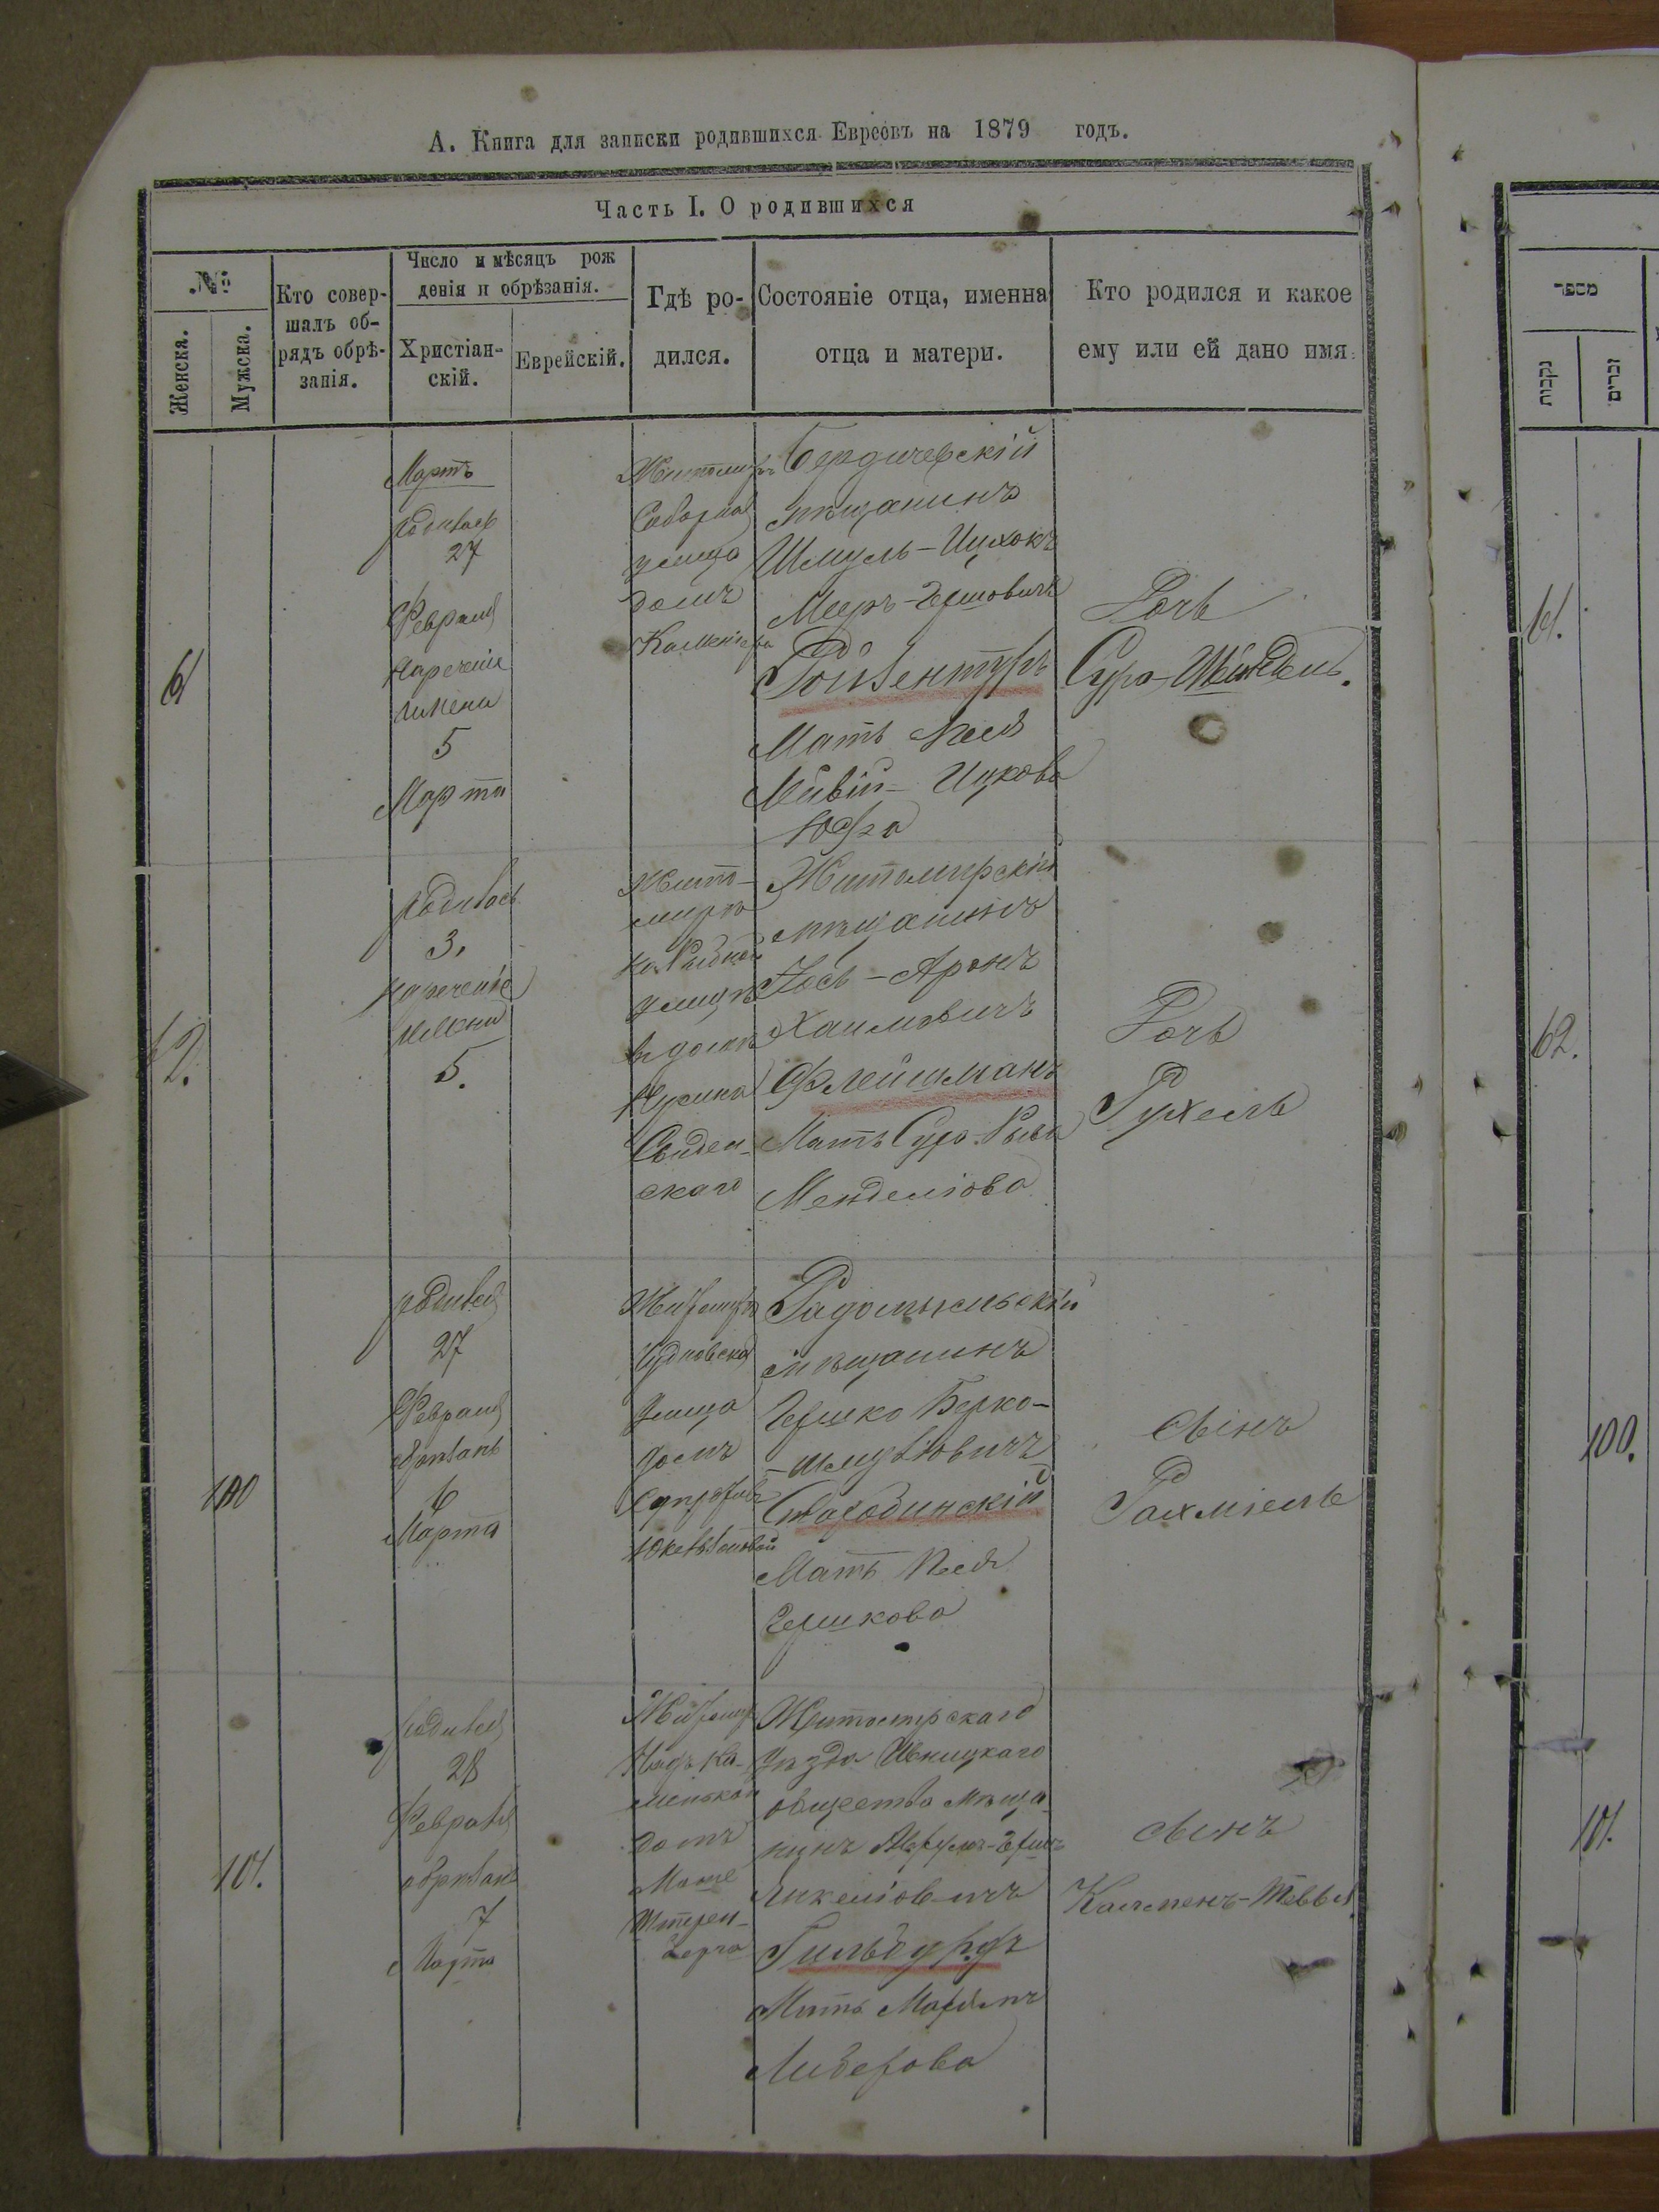 А. Книга для записки родившихся Евреовъ на 1879 годъ.
Часть I. О родившихся
№
Женска.
Мужска.
Кто совер-
шалъ об-
рядъ обрѣ-
занія.
Число и мѣсяцъ рож
денія и обрѣзанія.
Христіан-
скій.
Еврейскій.
Гдѣ ро-
дился.
Состояніе отца, именна
отца и матери.
Кто родился и какое
ему или ей дано имя.
61
Мартъ
родилась
27
Февраля
Нареченіе
имени
5
Марта
Житомиръ
Соборная
улица
домъ
Бердичевскій
мѣщанинъ
Шмуль-Ицхокъ
Меиръ-Гершовичъ
Ройзентуръ
Мать Песя
Лейвій-Ицкова
Дочь
Сура-Шейндель.
62.
родилась
3.
нареченіе
имени
5.
Жито-
миръ
на Рыбной
улицѣ
въ домѣ
Нусина
скаго
Житомирскій
мѣщанинъ
Іось-Аронъ
Хаимовичъ
Флейшманъ
Мать Сура-Рыва
Менделіова
Дочь
Рухель
100
родился
27
Февраля
обрѣзанъ
6
Марта
Житомиръ
Чудновская
улица
домъ
Радомысльскій
мѣщанинъ
Гершко Берко-
-шмулёвичъ
Стародинскій
Мать Песя
Гершкова
сынъ
Рахміель
101.
родился
28
Февраля
обрѣзанъ
7
Марта
Житомиръ
Надъ Ка-
менькой
домъ
Моше
Штерен-
берга
Житомирскаго
уѣзда Ивницкаго
общества мѣща
нинъ
Янкеліов-ичъ
Гильбурдъ
Мать Маріямъ
Либерова
сынъ
Калменъ-Тевья
מספר
נקבות
זכרים
61.
62.
100.
101.